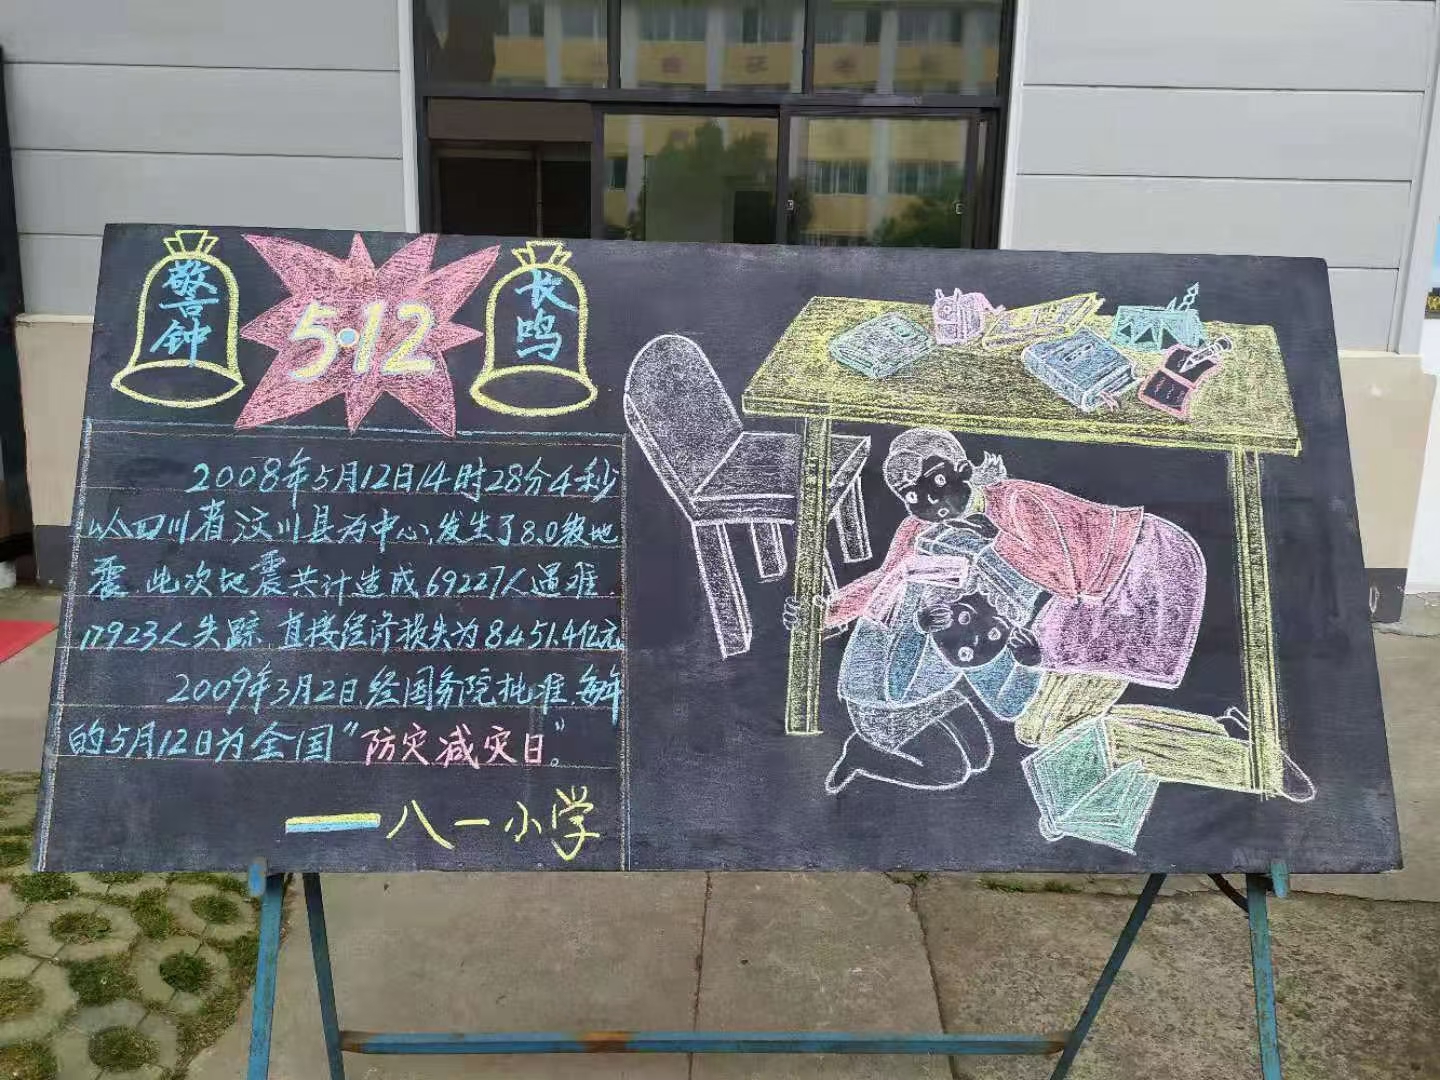 警钟
5·12
长鸣
2008年5月12日14时28分4秒
以四川省汶川县为中心,发生了8.0级地
震.此次地震共计造成69227人遇难.
17923人失踪.直接经济损失为8451.4亿元
2009年3月2日经国务院批准.每年
的5月12日为全国“防灾减灾日”。
八一小学